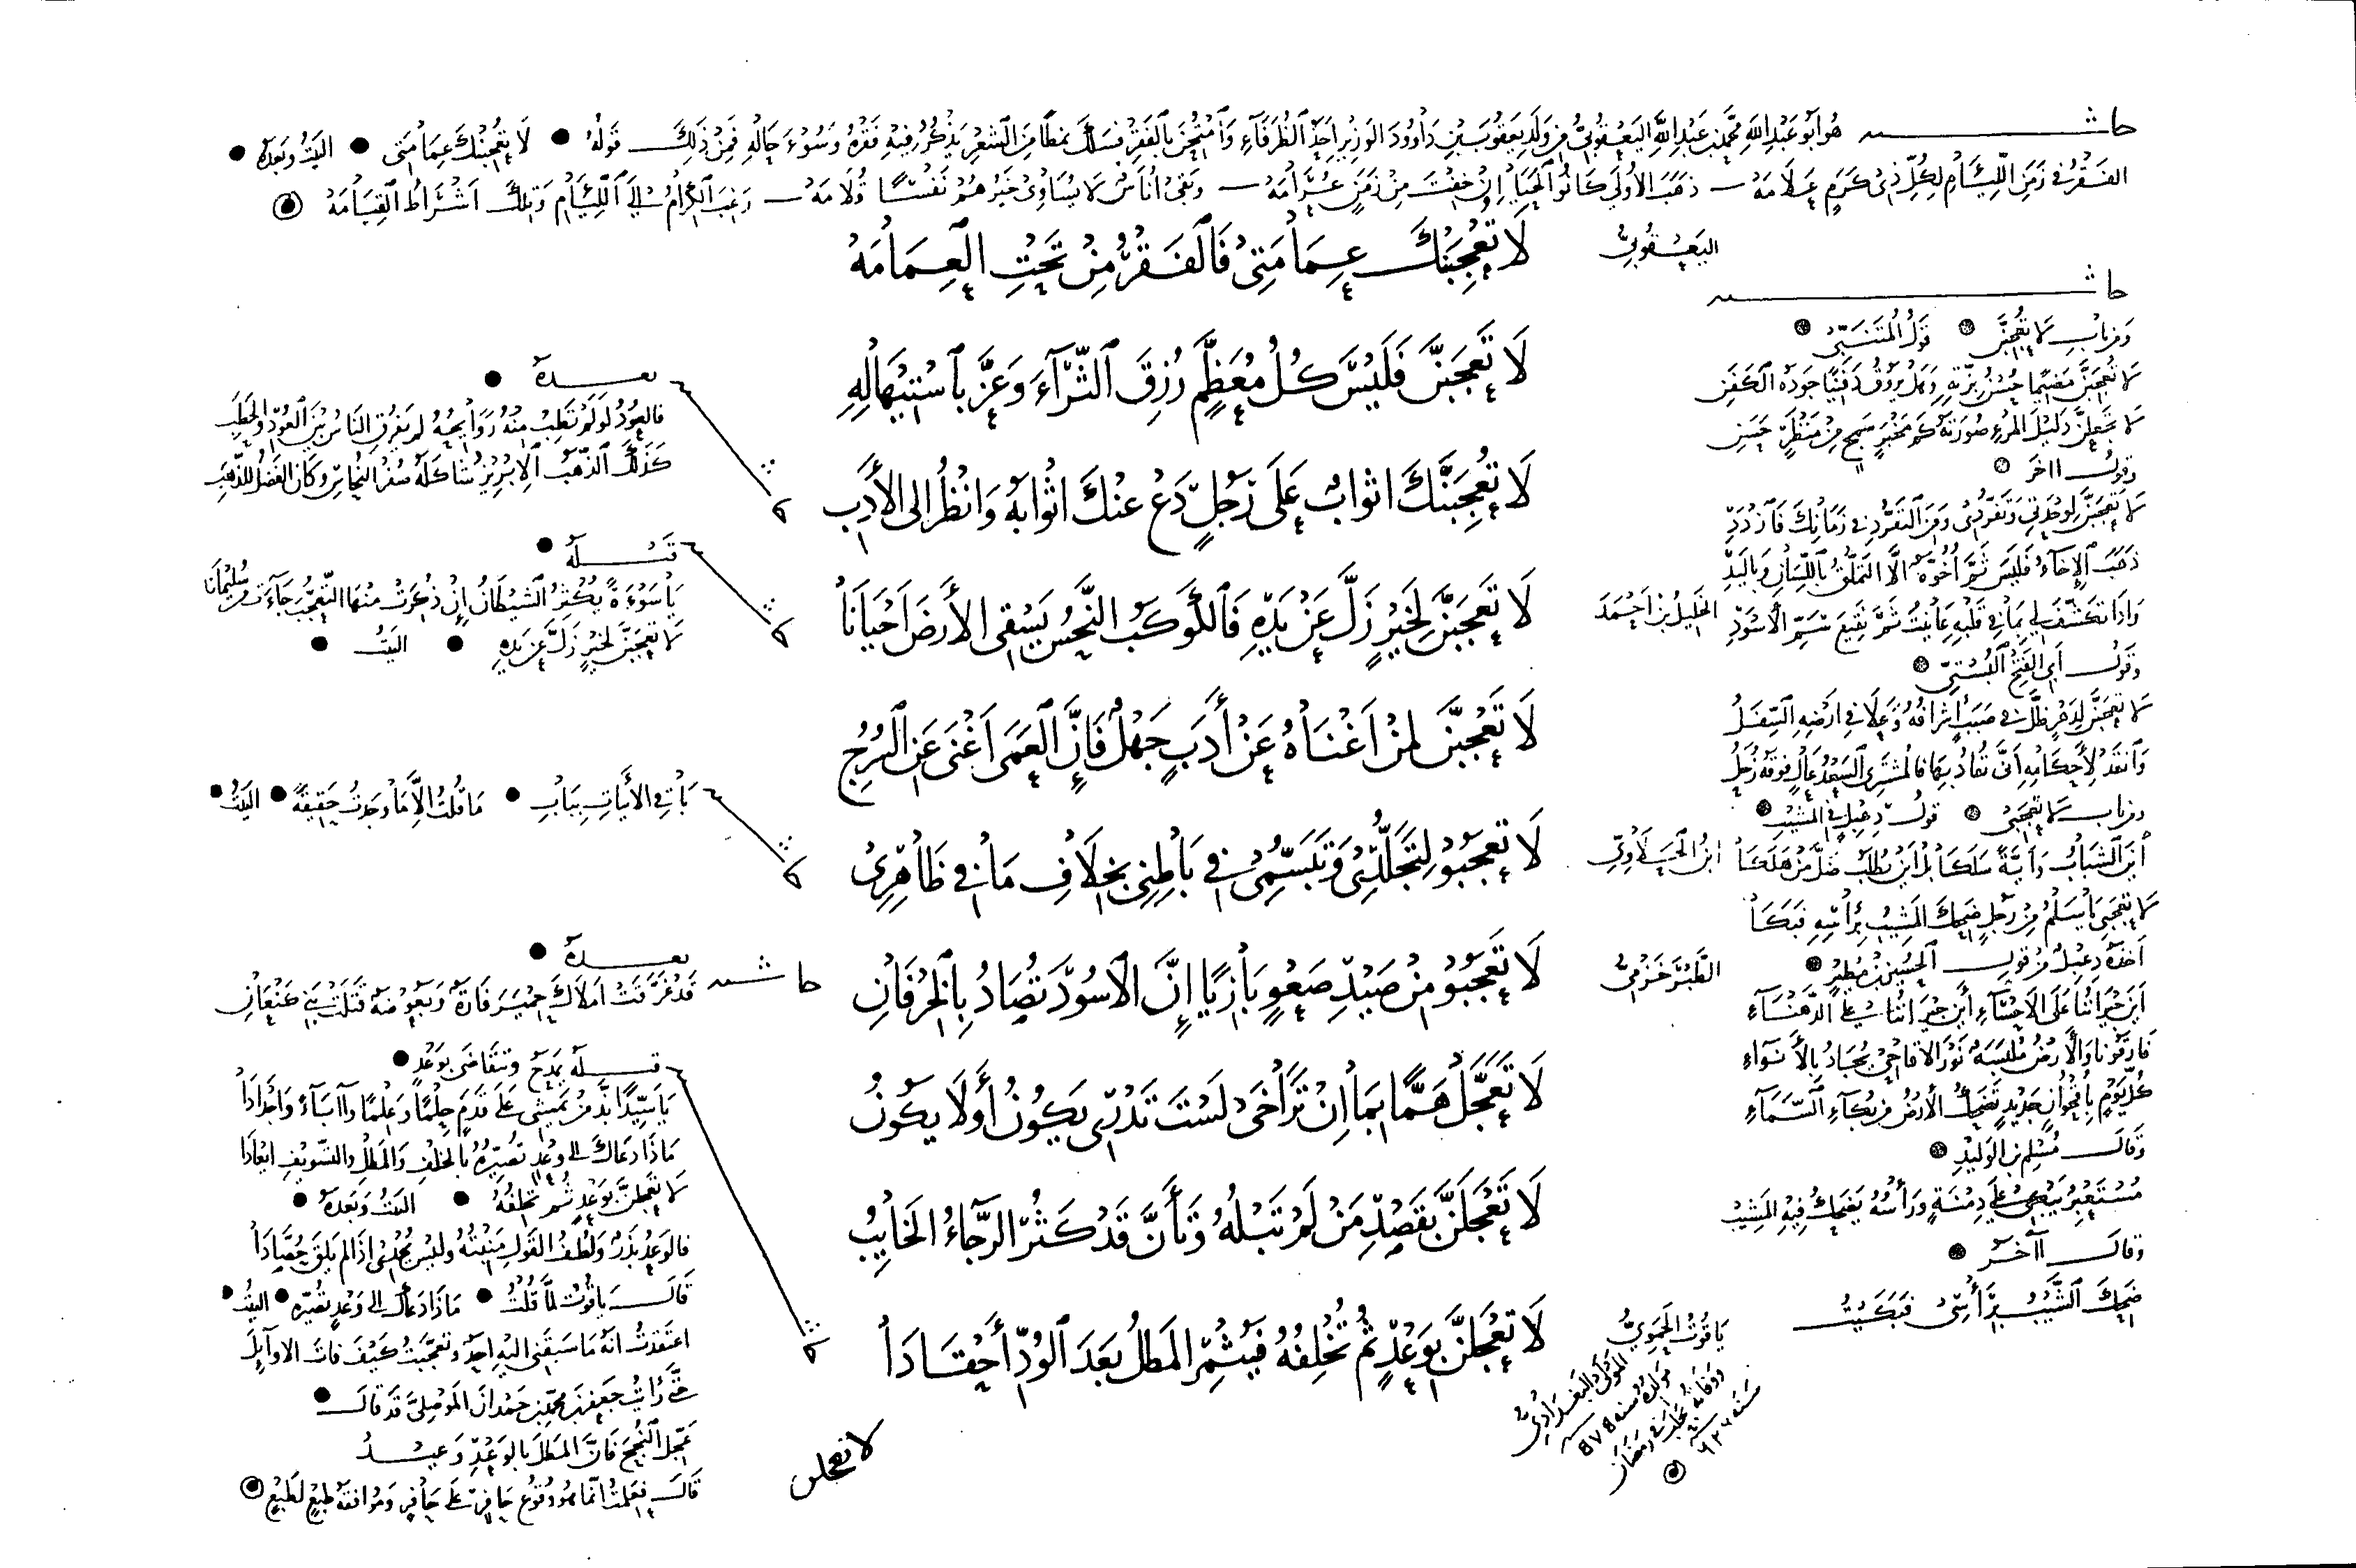 حاشية هو أبو عبد الله محمد بن عبد الله اليعقوبي من ولد يعقوب بن داوود الوزير احد الظرفاء وامتحن بالفقر فسلك نمطا من الشعر يذكر فيه فقره وسوء حاله فمن ذلك قوله • لا يعجبنك عمامتى • البيت وبعده •
الفقر في زمن اللئام لكل ذى كرم علامه ذهب الاولى كانوا الحيا ان خفت من زمن عرامه وبقى اناس لا يساوى خيرهم نفسا قلامه رغب الكرام الى اللئام وتلك اشراط القيامه
اليعقوبي
لا تعجبنك عمامتى فالفقر من تحت العمامه
لا تعجبن فليس كل معظم رزق الثراء وعز باستيهاله
لا تعجبنك اثواب على رجل دع عنك اثوابه وانظر الى الأدب
لا تعجبن لخير زل عن يده فالكوكب النحس يسقى الأرض احيانا
الخليل بن احمد
لا تعجبن لمن اغناه عن أدب جهل فإن العمى اغنى عن السرج
لا تعجبو لتجلدى وتبسمى فى باطنى بخلاف ما فى ظاهرى
لا تعجبو من صيد صعو بازيا إن الاسود تصاد بالخرفان
الطبرخزمى
لا تعجل هما بما ان تراخى لست تدرى يكون أو لا يكون
لا تعجلن بقصد من لم تبله وتأن قد كثر الرجاء الخايب
لا تعجلن بوعد ثم تخلفه فيثمر المطل بعد الود أحقادا
ياقوت الحموى
المولد البغدادى
مولده سنه ٥٧٥
ووفاته بحلب في رمضان
سنة ٦٢٦
لا تعجلن
حاشية
ومن باب لا تعجبن قول المتنبي
لا تعجبن مضيما حسن بزته وهل يروق دفينا جوده الكفن
لا تجعلن دليل المرء صورته كم مخبر سمج من منظر حسن
وقول اخر
لا تعجبن لوحدتى وتفردى ومن التفرد في زمانك فازدد
ذهب الإخاء فليس ثم أخوة الا التملق باللسان وباليد
واذا تكشف لي بما في قلبه عاينت ثم نقيع سم الأسود
وقول ابى الفتح البستى
لا تعجبن لدهر ظل في صبب أشرافه وعلا في ارضه السفل
وانقد لأحكامه أنى تقاد بها فالمشترى السعد عال فوقه زحل
ومن باب لا تعجبى قول دعبل في المشيب
أين الشباب وأية سلكا لا أين يطلب ضل من هلكا
لا تعجبى يا سلم من رجل ضحك المشيب برأسه فبكا
اخذه دعبل من قول الحسين بن مطير
اين جيراننا على الاحساء أين جيراننا على الدهناء
فارقونا والأرض ملبسة نور الاقاحى يجاد بالأنواء
كل يوم بأقحوان جديد تضحك الأرض من بكاء السماء
وقال مسلم بن الوليد
مستعبر يبكى على دمنة ورأسه يضحك فيه المشيب
وقال آخر
ضحك الشيب برأسى فبكيت
بعده •
فالعود لو لم تطب منه روايحه لم يفرق الناس بين العود والحطب
كذلك الذهب الإبريز شاكله صفر النحاس وكان الفضل للذهب
قبله •
يا سوءة يكثر الشيطان إن ذكرت منها التعجب جاءت من سليمانا
لا تعجبن لخير زل عن يده • البيت •
يأتى في الأبيات بباب • ما قلت الا ما وجدت حقيقة • البيت •
بعده •
حاشية قد غرقت املاك حمير فارة وبعوضة قتلت بنى كنعان
قبله يمدح وتقاضى بوعد •
يا سيدا بذ من يمشى على قدم حلما وعلما وآباء واجدادا
ماذا دعاك الى وعد تصيره بالخلف والمطل والتسويف ابعادا
لا تعجلن بوعد ثم تخلفه • البيت وبعده •
فالوعد بذر ولطف القول منبته وليس يجدى اذا لم يلق حصادا
قال ياقوت لما قلت • ماذا دعاك الى وعد تصيره • البيت •
اعتقدت انه ما سبقنى اليه احد وتعجبت كيف فات الاوايل
حتى رأيت جعفر بن محمد بن حمدان الموصلى قد قال •
عجل النجح فان المطل بالوعد وعيد
قال فعلمت انما هو وقوع حافر على حافر وموافقة طبع لطبع